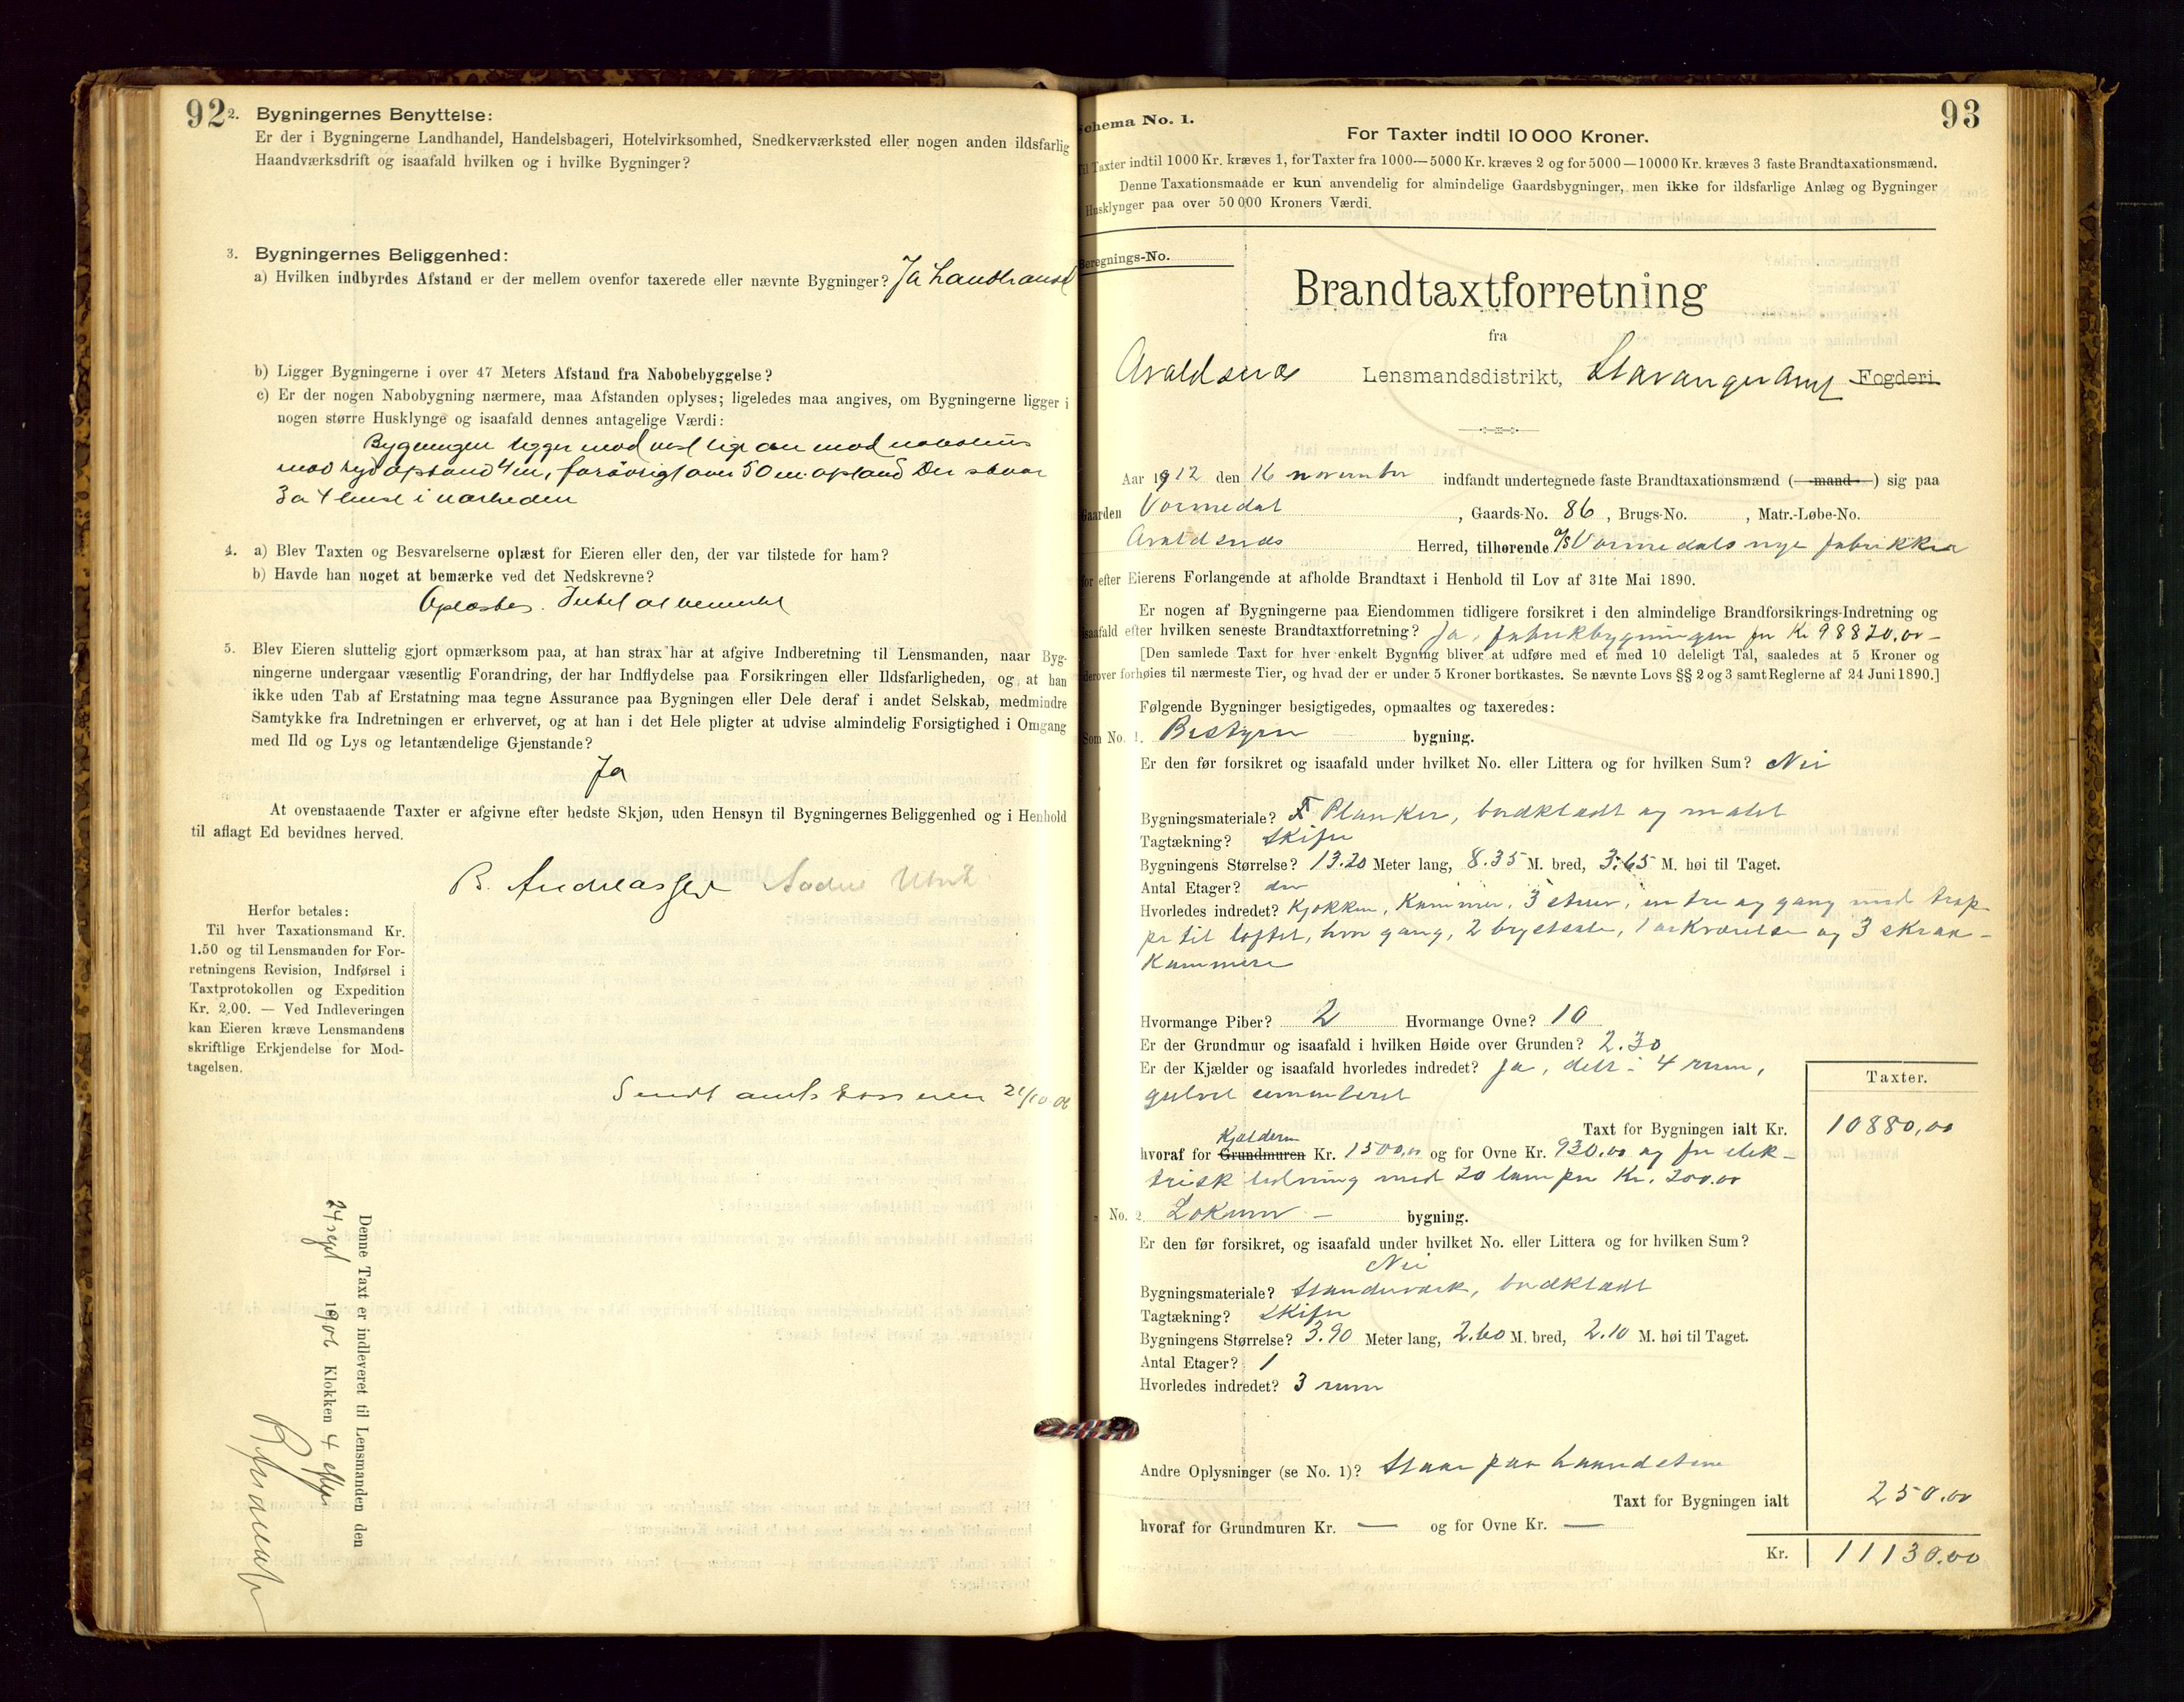 92
2. Bygningernes Benyttelse:
Er der i Bygningerne Landhandel, Handelsbageri, Hotelvirksomhed, Snedkerværksted eller nogen anden ildsfarlig
Haandværksdrift og isaafald hvilken og i hvilke Bygninger?
3. Bygningernes Beliggenhed:
a) Hvilken indbyrdes Afstand er der mellem ovenfor taxerede eller nævnte Bygninger? Ja
b) Ligger Bygningerne i over 47 Meters Afstand fra Nabobebyggelse?
c) Er der nogen Nabobygning nærmere, maa Afstanden oplyses; ligeledes maa angives, om Bygningerne ligger i
nogen større Husklynge og isaafald dennes antagelige Værdi:
Bygningen ligger mod vest lige mod nabohus
mod syd afstand 4 m, forövrigt over 50 m. afstand Der staar
3 a 4 huse i nærheden
4. a) Blev Taxten og Besvarelserne oplæst for Eieren eller den, der var tilstede for ham?
b) Havde han noget at bemærke ved det Nedskrevne?
Oplæstes. Intet at bemerke
5. Blev Eieren sluttelig gjort opmærksom paa, at han strax har at afgive Indberetning til Lensmanden, naar Byg-
ningerne undergaar væsentlig Forandring, der har Indflydelse paa Forsikringen eller Ildsfarligheden, og at han
ikke uden Tab af Erstatning maa tegne Assurance paa Bygningen eller Dele deraf i andet Selskab, medmindre
Samtykke fra Indretningen er erhvervet, og at han i det Hele pligter at udvise almindelig Forsigtighed i Omgang
med Ild og Lys og letantændelige Gjenstande?
Ja
At ovenstaaende Taxter er afgivne efter bedste Skjøn, uden Hensyn til Bygningernes Beliggenhed og i Henhold
til aflagt Ed bevidnes herved.
B. Andreassen
Herfor betales:
Til hver Taxationsmand Kr.
1.50 og til Lensmanden for For-
retningens Revision, Indførsel i
Taxtprotokollen og Expedition
Kr. 2,00. — Ved Indleveringen
kan Eieren kræve Lensmandens
skriftlige Erkjendelse for Mod-
tagelsen.
Sendt amtskassereren 21/10 06
Denne Taxt er indleveret til Lensmanden den
24 sept 1906 Klokken 4
93
Schema No. 1.
For Taxter indtil 10 000 Kroner.
Til Taxter indtil 1000 Kr. kræves 1, for Taxter fra 1000—5000 Kr. kræves 2 og for 5000—10000 Kr. kræves 3 faste Brandtaxationsmænd.
Denne Taxationsmaade er kun anvendelig for almindelige Gaardsbygninger, men ikke for ildsfarlige Anlæg og Bygninger
Husklynger paa over 50 000 Kroners Værdi.
Beregnings-No.
Brandtaxtforretning
fra
Avaldsnes Lensmandsdistrikt, Stavanger Amt Fogderi
Aar 1912 den 16 november indfandt undertegnede faste Brandtaxationsmænd (—mand—) sig paa
Gaarden Vormedal, Gaards-No. 86, Brugs-No. , Matr.-Løbe-No.
Avaldsnes Herred, tilhørende A/S Vormedals nye fabrikker
for efter Eierens Forlangende at afholde Brandtaxt i Henhold til Lov af 31te Mai 1890.
Er nogen af Bygningerne paa Eiendommen tidligere forsikret i den almindelige Brandforsikrings-Indretning og
isaafald efter hvilken seneste Brandtaxtforretning? Ja, fabrikbygningen for Kr 98820.00 —
[Den samlede Taxt for hver enkelt Bygning bliver at udføre med et med 10 deleligt Tal, saaledes at 5 Kroner og
derover forhøies til nærmeste Tier, og hvad der er under 5 Kroner bortkastes. Se nævnte Lovs §§ 2 og 3 samt Reglerne af 24 Juni 1890.]
Følgende Bygninger besigtigedes, opmaaltes og taxeredes:
Som No. 1. Bestyrer — bygning.
Er den før forsikret og isaafald under hvilket No. eller Littera og for hvilken Sum? Nei
Bygningsmateriale? Planker, bordklædt og malet
Tagtækning? Skifer
Bygningens Størrelse? 13.20 Meter lang, 8.35 M. bred, 3.65 M. høi til Taget.
Antal Etager?
Hvorledes indredet? Kjøkken, Kammer, 3 stuer, entre og gang med trap-
pe til loftet, hvor gang, 2 1 arkværelse og 3 skraa-
kammere
Hvormange Piber? 2 Hvormange Ovne? 10
Er der Grundmur og isaafald i hvilken Høide over Grunden? 2.30
Er der Kjælder og isaafald hvorledes indredet? Ja, delt i 4 rum,
gulvet cementeret
Taxter.
Taxt for Bygningen ialt Kr. 10880,00
Kjælderen
hvoraf for Grundmuren Kr. 1500,00 og for Ovne Kr. 930.00 og for elek-
trisk ledning med 20 lamper Kr. 200.00
" No. 2 Lokum — bygning.
Er den før forsikret, og isaafald under hvilket No. eller Littera og for hvilken Sum?
Nei
Bygningsmateriale? Standerværk, bordklædt
Tagtækning? Skifer
Bygningens Størrelse? 3.90 Meter lang, 2.60 M. bred, 2.10 M. høi til Taget.
Antal Etager? 1
Hvorledes indredet? 3 rum
Andre Oplysninger (se No. 1)? Staar paa
Taxt for Bygningen ialt 250.00
hvoraf for Grundmuren Kr. — og for Ovne Kr. —
Kr. 11130.00